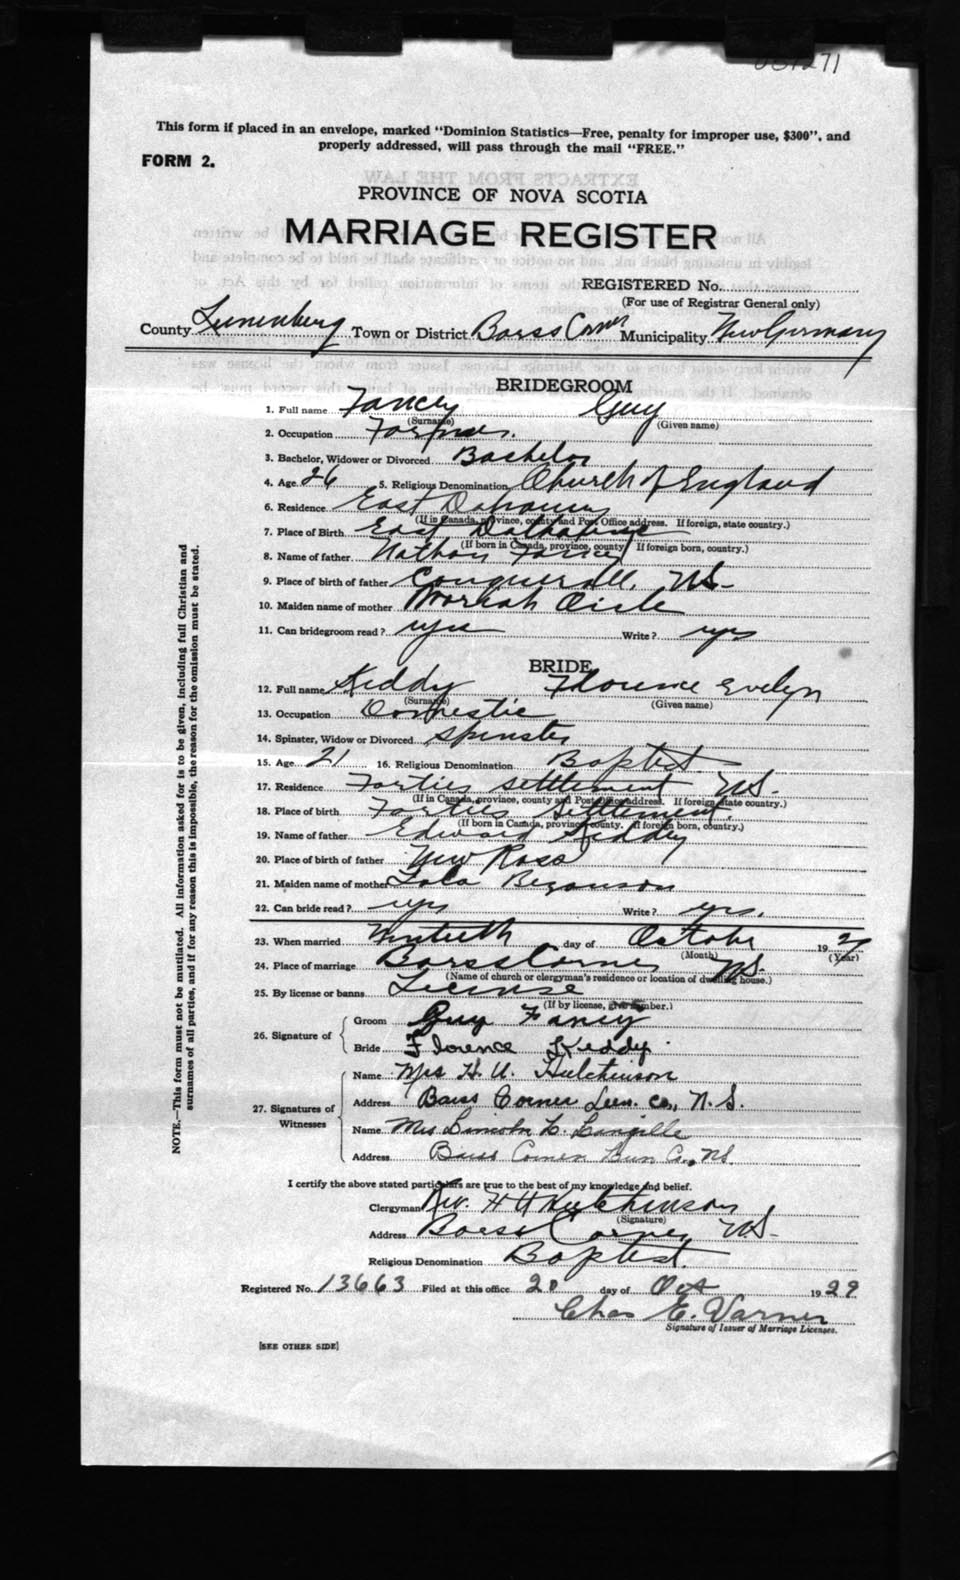 This form if placed in an envelope, marked "Dominion Statistics—Free, penalty for improper use, $300", and
properly addressed, will pass through the mail "FREE."
FORM 2.
PROVINCE OF NOVA SCOTIA
MARRIAGE REGISTER
REGISTERED No.
(For use of Registrar General only)
County Lunenburg Town or District Barss Corner Municipality New Germany
BRIDEGROOM
1. Full name Fancy Guy
(Surname) (Given name)
2. Occupation Farmer.
3. Bachelor, Widower or Divorced Bachelor
4. Age 26 5. Religious Denomination Church of England
6. Residence East
(If in Canada, province, county and Post Office address. If foreign, state country.)
7. Place of Birth East Dalhousie
(If born in Canada, province, county If foreign born, country.)
8. Name of father Nathan Fancy
9. Place of birth of father Conquerall, NS-
10. Maiden name of mother
11. Can bridegroom read? yes Write? yes
BRIDE
12. Full name Keddy Florence Evelyn
(Surname) (Given name)
13. Occupation Domestic
14. Spinster, Widow or Divorced Spinster
15. Age 21 16. Religious Denomination Baptist
17. Residence Forties Settlement NS.
(If in Canada, province, county and Post Office address. If foreign, state country.)
18. Place of birth Forties Settlement.
(If born in Canada, province, county. If foreign born, country.)
19. Name of father Edward Keddy
20. Place of birth of father New Ross
21. Maiden name of mother Lola Bezanson
22. Can bride read? yes Write? yes.
23. When married day of October 19
(Month) (Year)
24. Place of marriage Barss Corner NS.
(Name of church or clergyman's residence or location of dwelling house.)
25. By license or banns License
(If by license, give number.)
26. Signature of Groom Guy Fancy
Bride Florence Keddy.
27. Signatures of Witnesses Name Mrs H. U. Hutchinson
Address Barss Corner Lun. Co., N.S.
Name Mrs Lincoln Langille
Address Barss Corner Lun Co., NS.
I certify the above stated particulars are true to the best of my knowledge and belief.
Clergyman Rev. H U Hutchinson
(Signature)
Address Barss Corner NS-
Religious Denomination Baptist.
Registered No. 13663 Filed at this office 20 day of Oct 1929
Chas E. Varner
Signature of Issuer of Marriage Licenses.
[SEE OTHER SIDE]
NOTE.—This form must not be mutilated. All information asked for is to be given, including full Christian and
surnames of all parties, and if for any reason this is impossible, the reason for the omission must be stated.